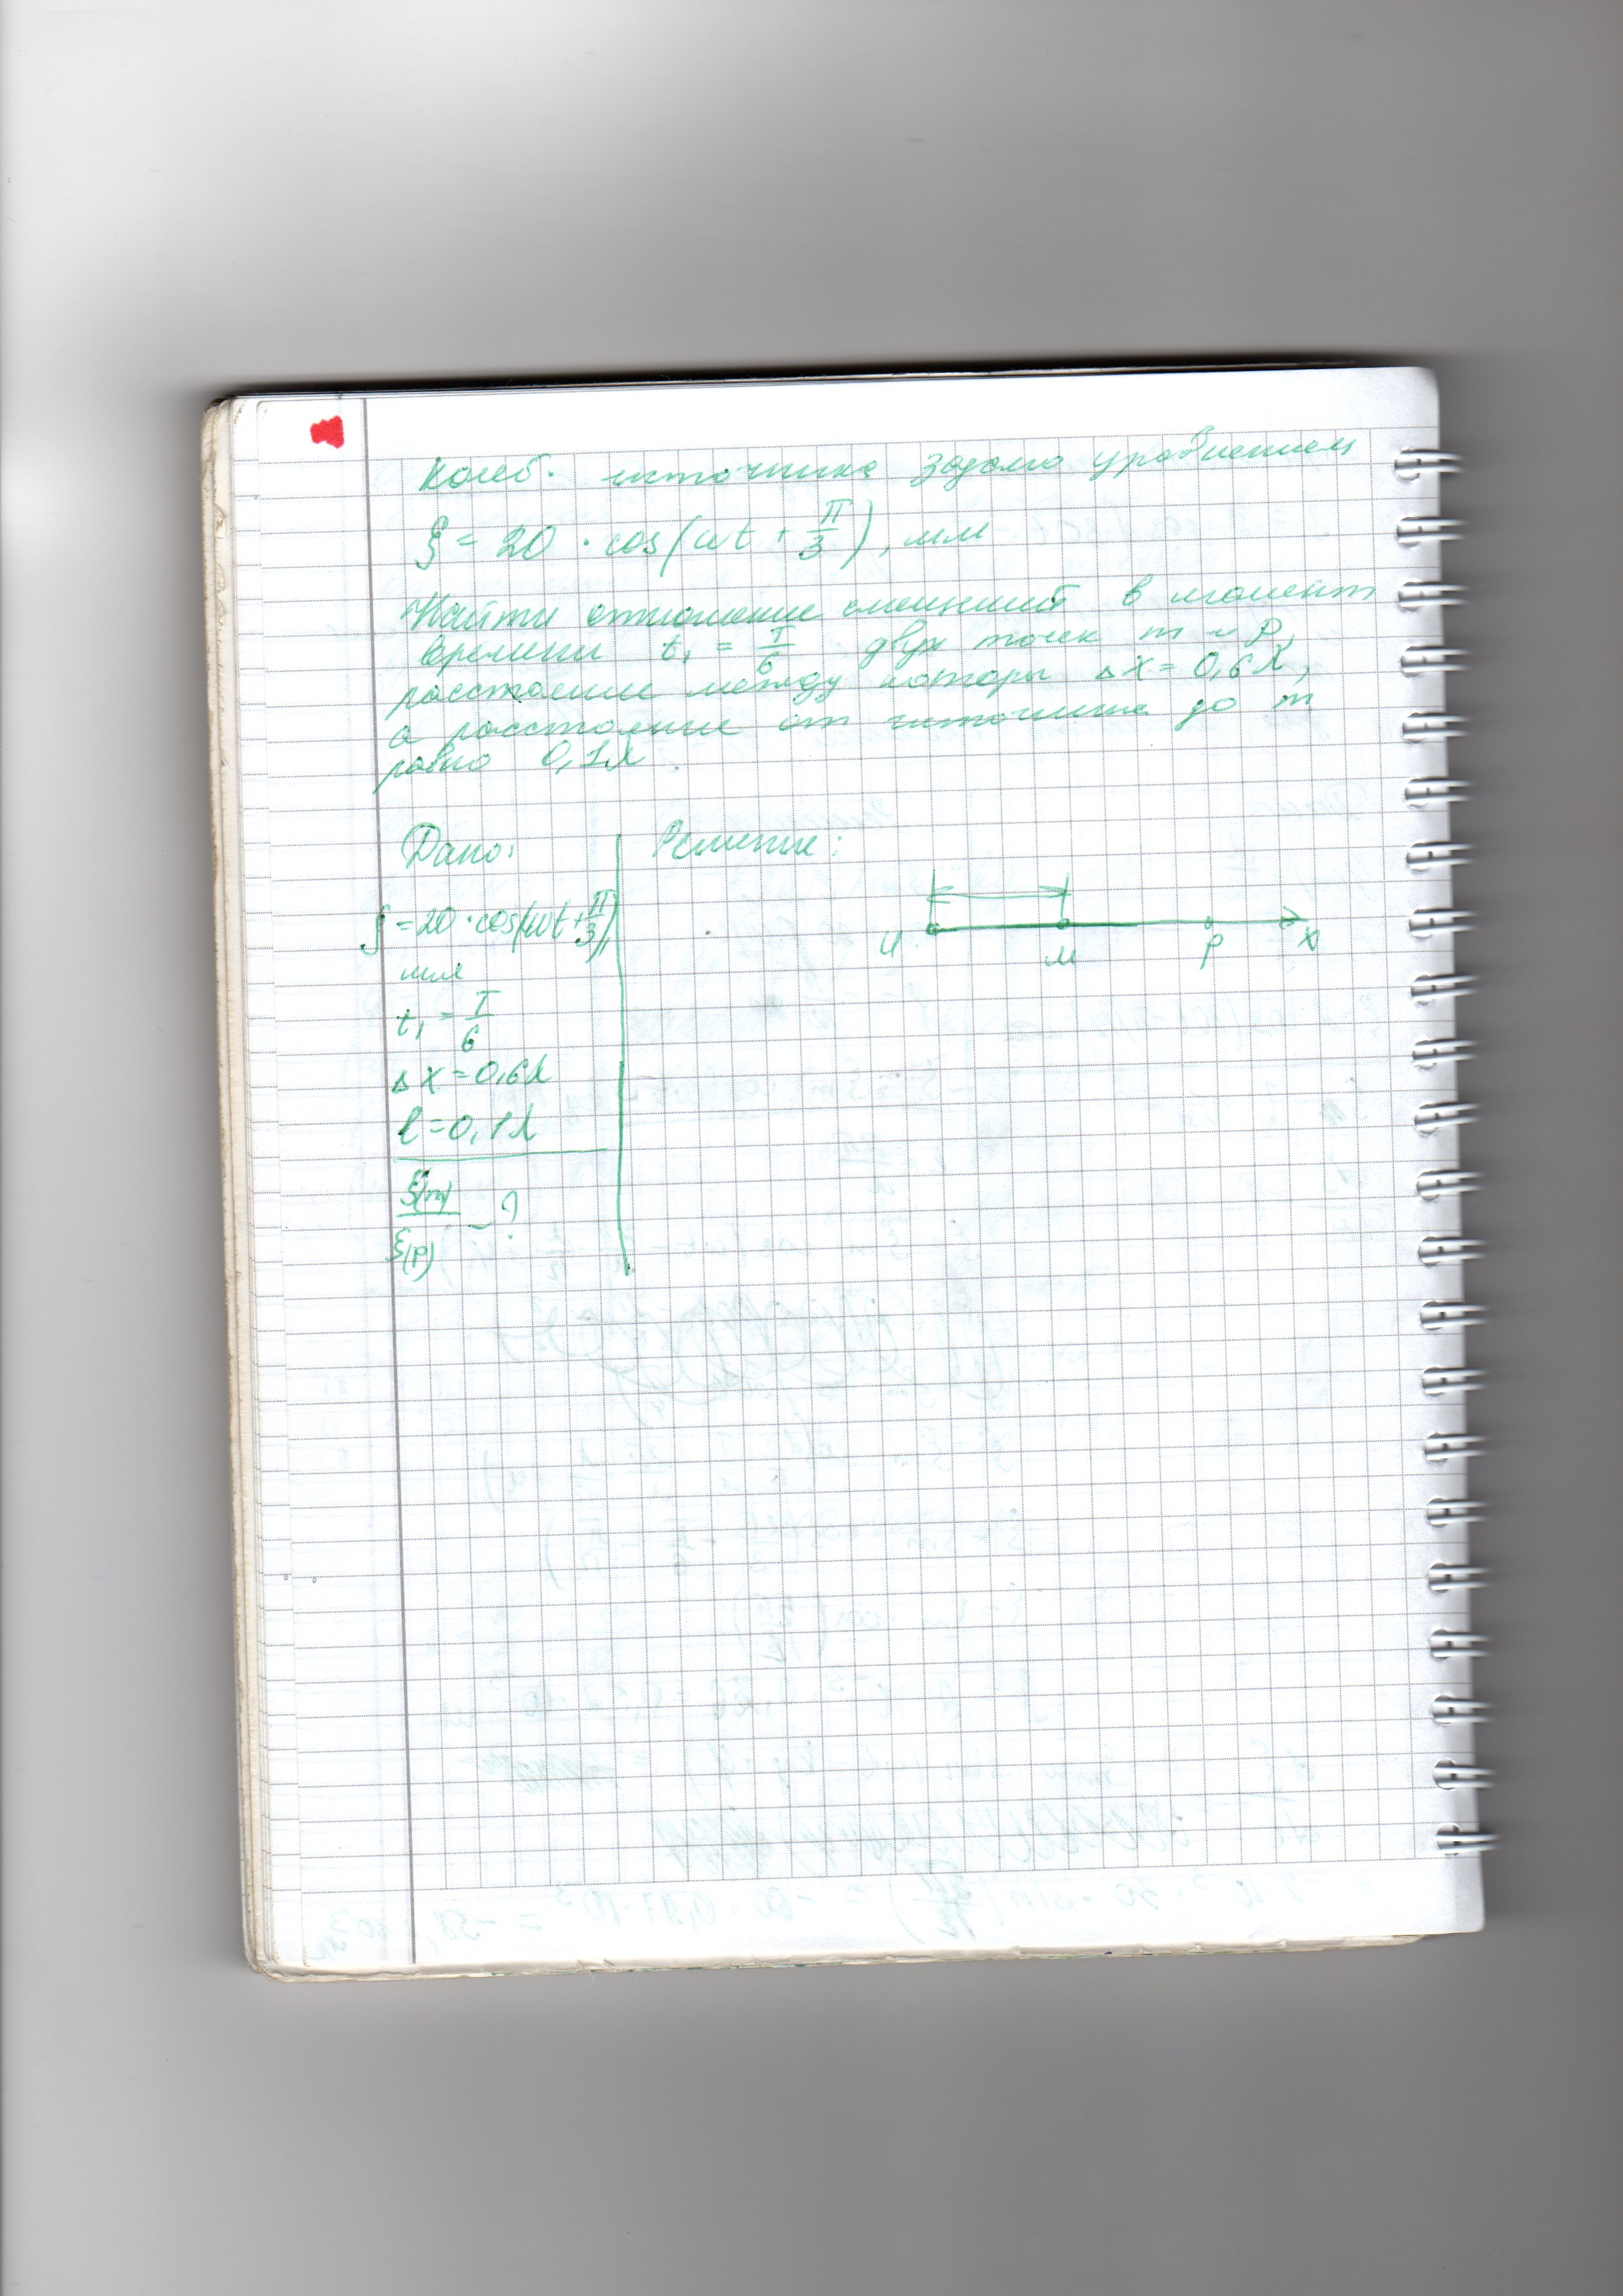 Колеб. источника задано уравнением
ξ = 20 · cos(ωt + π/3), мм
Найти отношение смещений в момент
времени t₁ = T/6 двух точек m и P,
расстояние между которы Δx = 0,6λ,
а расстояние от источника до m
равно 0,1λ.
Дано:
Решение:
ξ = 20 · cos(ωt + π/3),
мм
t₁ = T/6
Δx = 0,6λ
l = 0,1λ
ξ(m)/ξ(p) - ?
И M P X